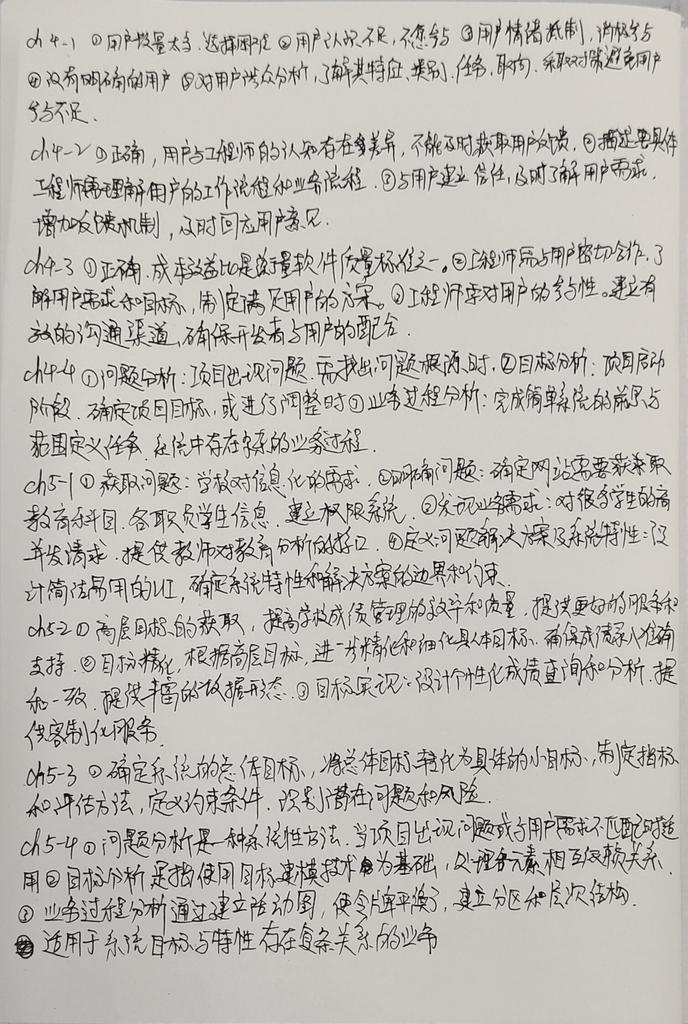 ch4-1 ①用户数量太多,选择困难 ②用户认识不足,不愿参与 ③用户情绪抵制,消极参与
④没有明确的用户 ⑤对用户涉众分析,了解其特征、类别、任务、取向,采取对策避免用户
参与不足.
ch4-2 ①正确,用户与工程师的认知存在差异,不能及时获取用户反馈,②描述要具体
工程师需理解用户的工作流程和业务流程. ③与用户建立信任,及时了解用户需求,
增加反馈机制,及时回应用户意见.
ch4-3 ①正确.成本效益比是衡量软件质量标准之一。②工程师需与用户密切合作,了
解用户需求和目标,制定满足用户的方案。③工程师要对用户的参与性。建立有
效的沟通渠道,确保开发者与用户的配合.
ch4-4 ①问题分析:项目出现问题.需找出问题根源时.②目标分析:项目启动
阶段.确定项目目标,或进行调整时③业务过程分析:完成简单系统的前景与
范围定义任务.系统中存在的业务过程.
ch5-1 ①获取问题:学校对信息化的需求.②明确问题:确定网站需要获取
教育科目.各职员学生信息.建立权限系统.③发现业务需求:对很多学生的高
并发请求.提供教师对教育分析的接口.④定义问题解决方案及系统特性:设
计简洁易用的UI,确定系统特性和解决方案的边界和约束.
ch5-2 ①高层目标的获取,提高学校成绩管理的效率和质量.提供更好的服务和
支持.②目标精化,根据高层目标,进一步精化和细化具体目标.确保成绩录入准确
和一致.提供丰富的数据形态.③目标实现:设计个性化成绩查询和分析.提
供客制化服务.
ch5-3 ①确定系统的总体目标,将总体目标转化为具体的小目标,制定指标
和评估方法,定义约束条件.识别潜在问题和风险.
ch5-4 ①问题分析是一种系统性方法.当项目出现问题或与用户需求不匹配时适
用②目标分析是指使用目标建模技术为基础,处理各元素相互依赖关系.
③业务过程分析通过建立活动图,使令牌平衡,建立分区和层次结构.
适用于系统目标与特性存在复杂关系的业务